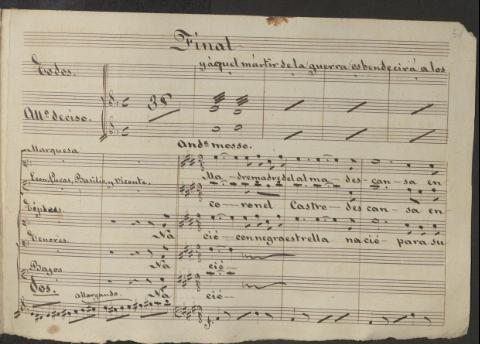 Final
Todos. y aquel mártir de la guerra os bendecirá a los
All.º deciso. 38
And.º mosso.
Marquesa
Leon, Lucas, Basilio, y Vicente. Ma-dre madre del alma des-can-sa en
Tiples. co-ronel Castro-des can-sa en
Na ció-con negra estrella na ció-para su
Tenores.
Na ció-
Bajos
Dos. allargando. Na ció-